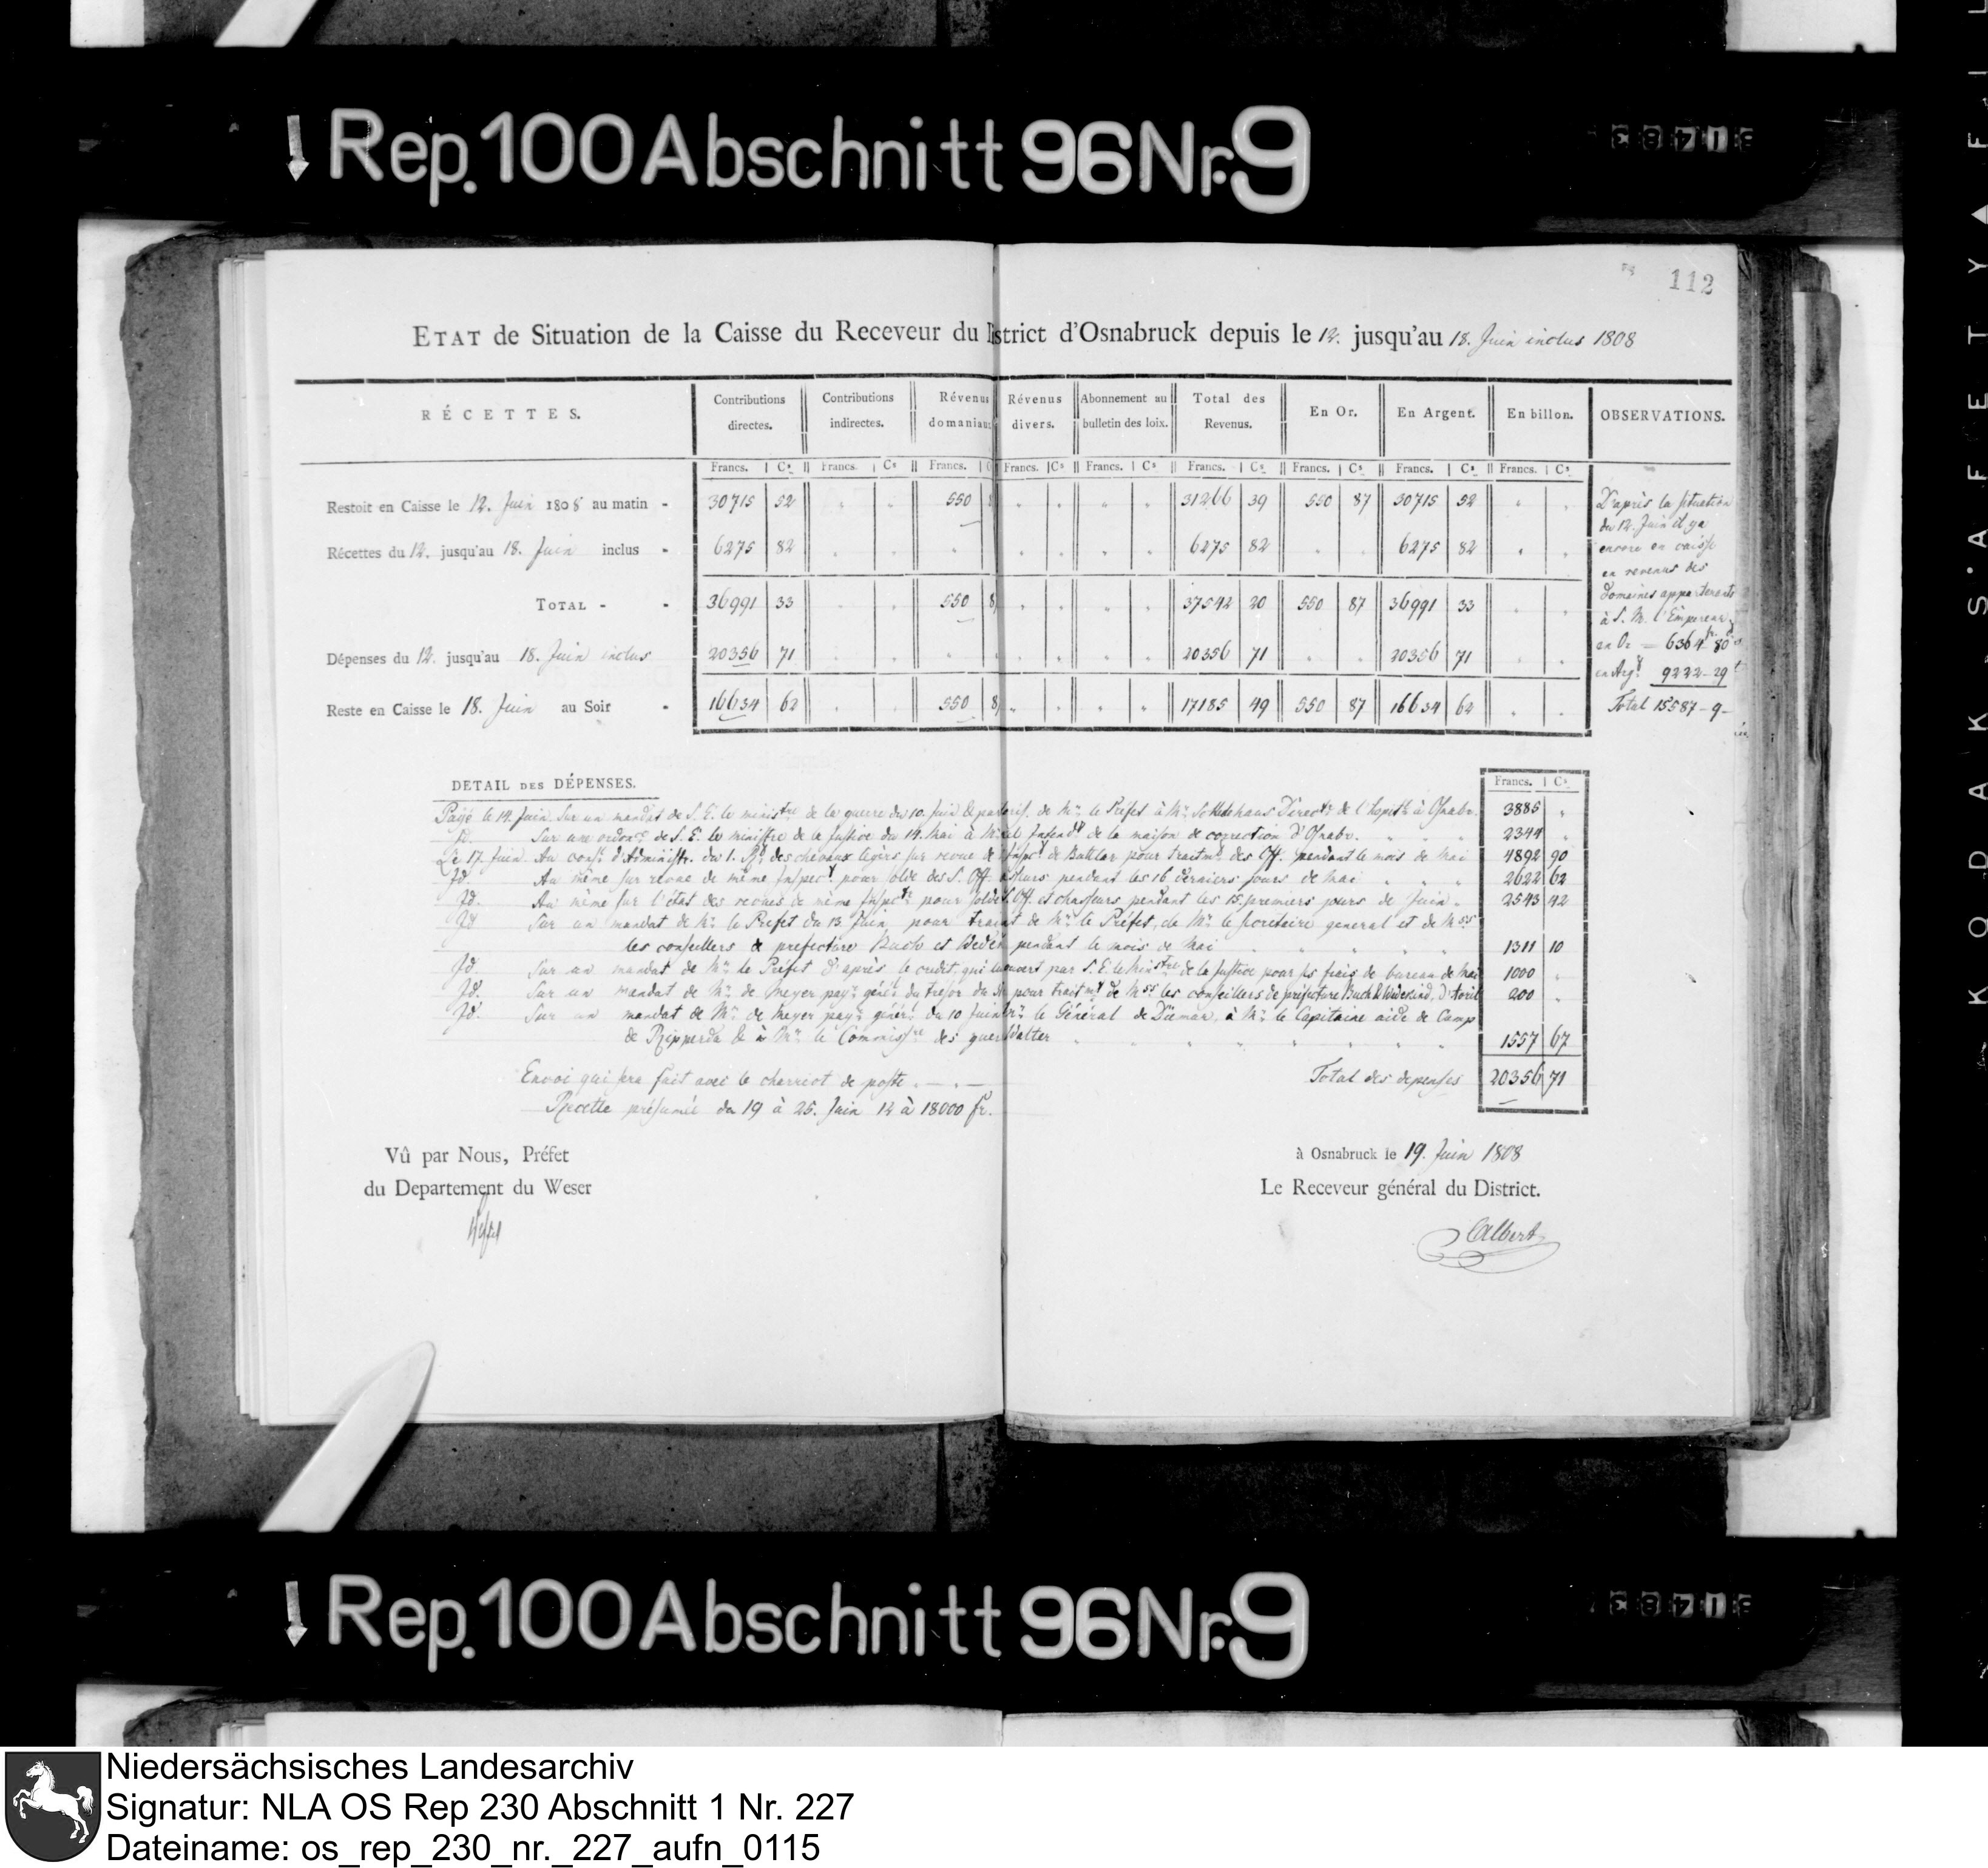 Rep. 100 Abschnitt 96 Nr. 9
112
ETAT de Situation de la Caisse du Receveur du District d'Osnabruck depuis le 12. jusqu'au 18. Juin inclus 1808
RÉCETTES. Contributions directes. Contributions indirectes. Révenus domaniaux Révenus divers. Abonnement au bulletin des loix. Total des Revenus. En Or. En Argent. En billon. OBSERVATIONS.
Francs. Cs Francs. Cs Francs. C Francs. Cs Francs. Cs Francs. Cs Francs. Cs Francs. Cs Francs. Cs
Restoit en Caisse le 12. Juin 1808 au matin - 30715 52 550 8 31266 39 550 87 30715 52
Récettes du 12. jusqu'au 18. Juin inclus - 6275 82 6275 82 6275 82
TOTAL - - 36991 33 550 8 37542 20 550 87 36991 33
Dépenses du 12. jusqu'au 18. Juin inclus 20356 71 20356 71 20356 71
Reste en Caisse le 18. Juin au Soir - 16634 62 550 8 17185 49 550 87 16634 62
D'après la situation
du 12. Juin il y a
encore en caisse
en revenus des
domaines appartenants
à S. M. l'Empereur
en Or = 6364 fr. 80
en Argt 9222-29
Total 15587-9-
DETAIL DES DÉPENSES. Francs. Cs
Payé le 14. Juin Sur un mandat de S. E. le ministre de la guerre du 10. Juin & de Mr. le Préfet à Mr. Directr de l'hopitl à Osnabr. 3885
Id. Sur une ordonce de S. E. le ministre de la Justice du 14. Mai à Intendt de la maison de correction d'Osnabr. 2344
Le 17. Juin Au cons. d'Administr. du 1. Rt des chevaux legers sur revue de l'Inspect de Buttlar pour traitmt des Off. pendant le mois de Mai 4892 90
Id. Au même sur revue de même Inspect pour solde des S. Off. pendant les 16 derniers jours de Mai 2622 62
Id. Au même sur l'état des revues de même Inspectr pour solde S. Off. et chasseurs pendant les 15. premiers jours de Juin 2543 42
Id Sur un mandat de Mr. le Prefet du 13. Juin pour de Mr. le Préfet, de Mr. le secretaire general et de Mss
les conseillers de prefecture Buch et pendant le mois de Mai 1311 10
Id. Sur un mandat de Mr. le Préfet d'après le credit, qui lui ouvert par S. E. le Ministre de la Justice pour ses frais de bureau de Mai 1000
Id. Sur un mandat de Mr. de Meyer payr. génér. du tresor du pour traitmt de Mss les conseillers de préfecture Buch & Wedekind, d'Avril 200
Id. Sur un mandat de Mr. de Meyer payr. génér. du 10 Juin le Général de Diemar, à Mr. le Capitaine aide de Camp
de Ripperda & à Mr. le Commissre des guer Walter 1557 67
Envoi qui sera fait avec le charriot de poste . — . —
Total des depenses 20356 71
Récette présumée du 19 à 25. Juin 12 à 18000 fr.
Vû par Nous, Préfet
du Departement du Weser
à Osnabruck le 19. Juin 1808
Le Receveur général du District.
Albert
Rep. 100 Abschnitt 96 Nr. 9
KODAK SAFETY FIL
Niedersächsisches Landesarchiv
Signatur: NLA OS Rep 230 Abschnitt 1 Nr. 227
Dateiname: os_rep_230_nr._227_aufn_0115